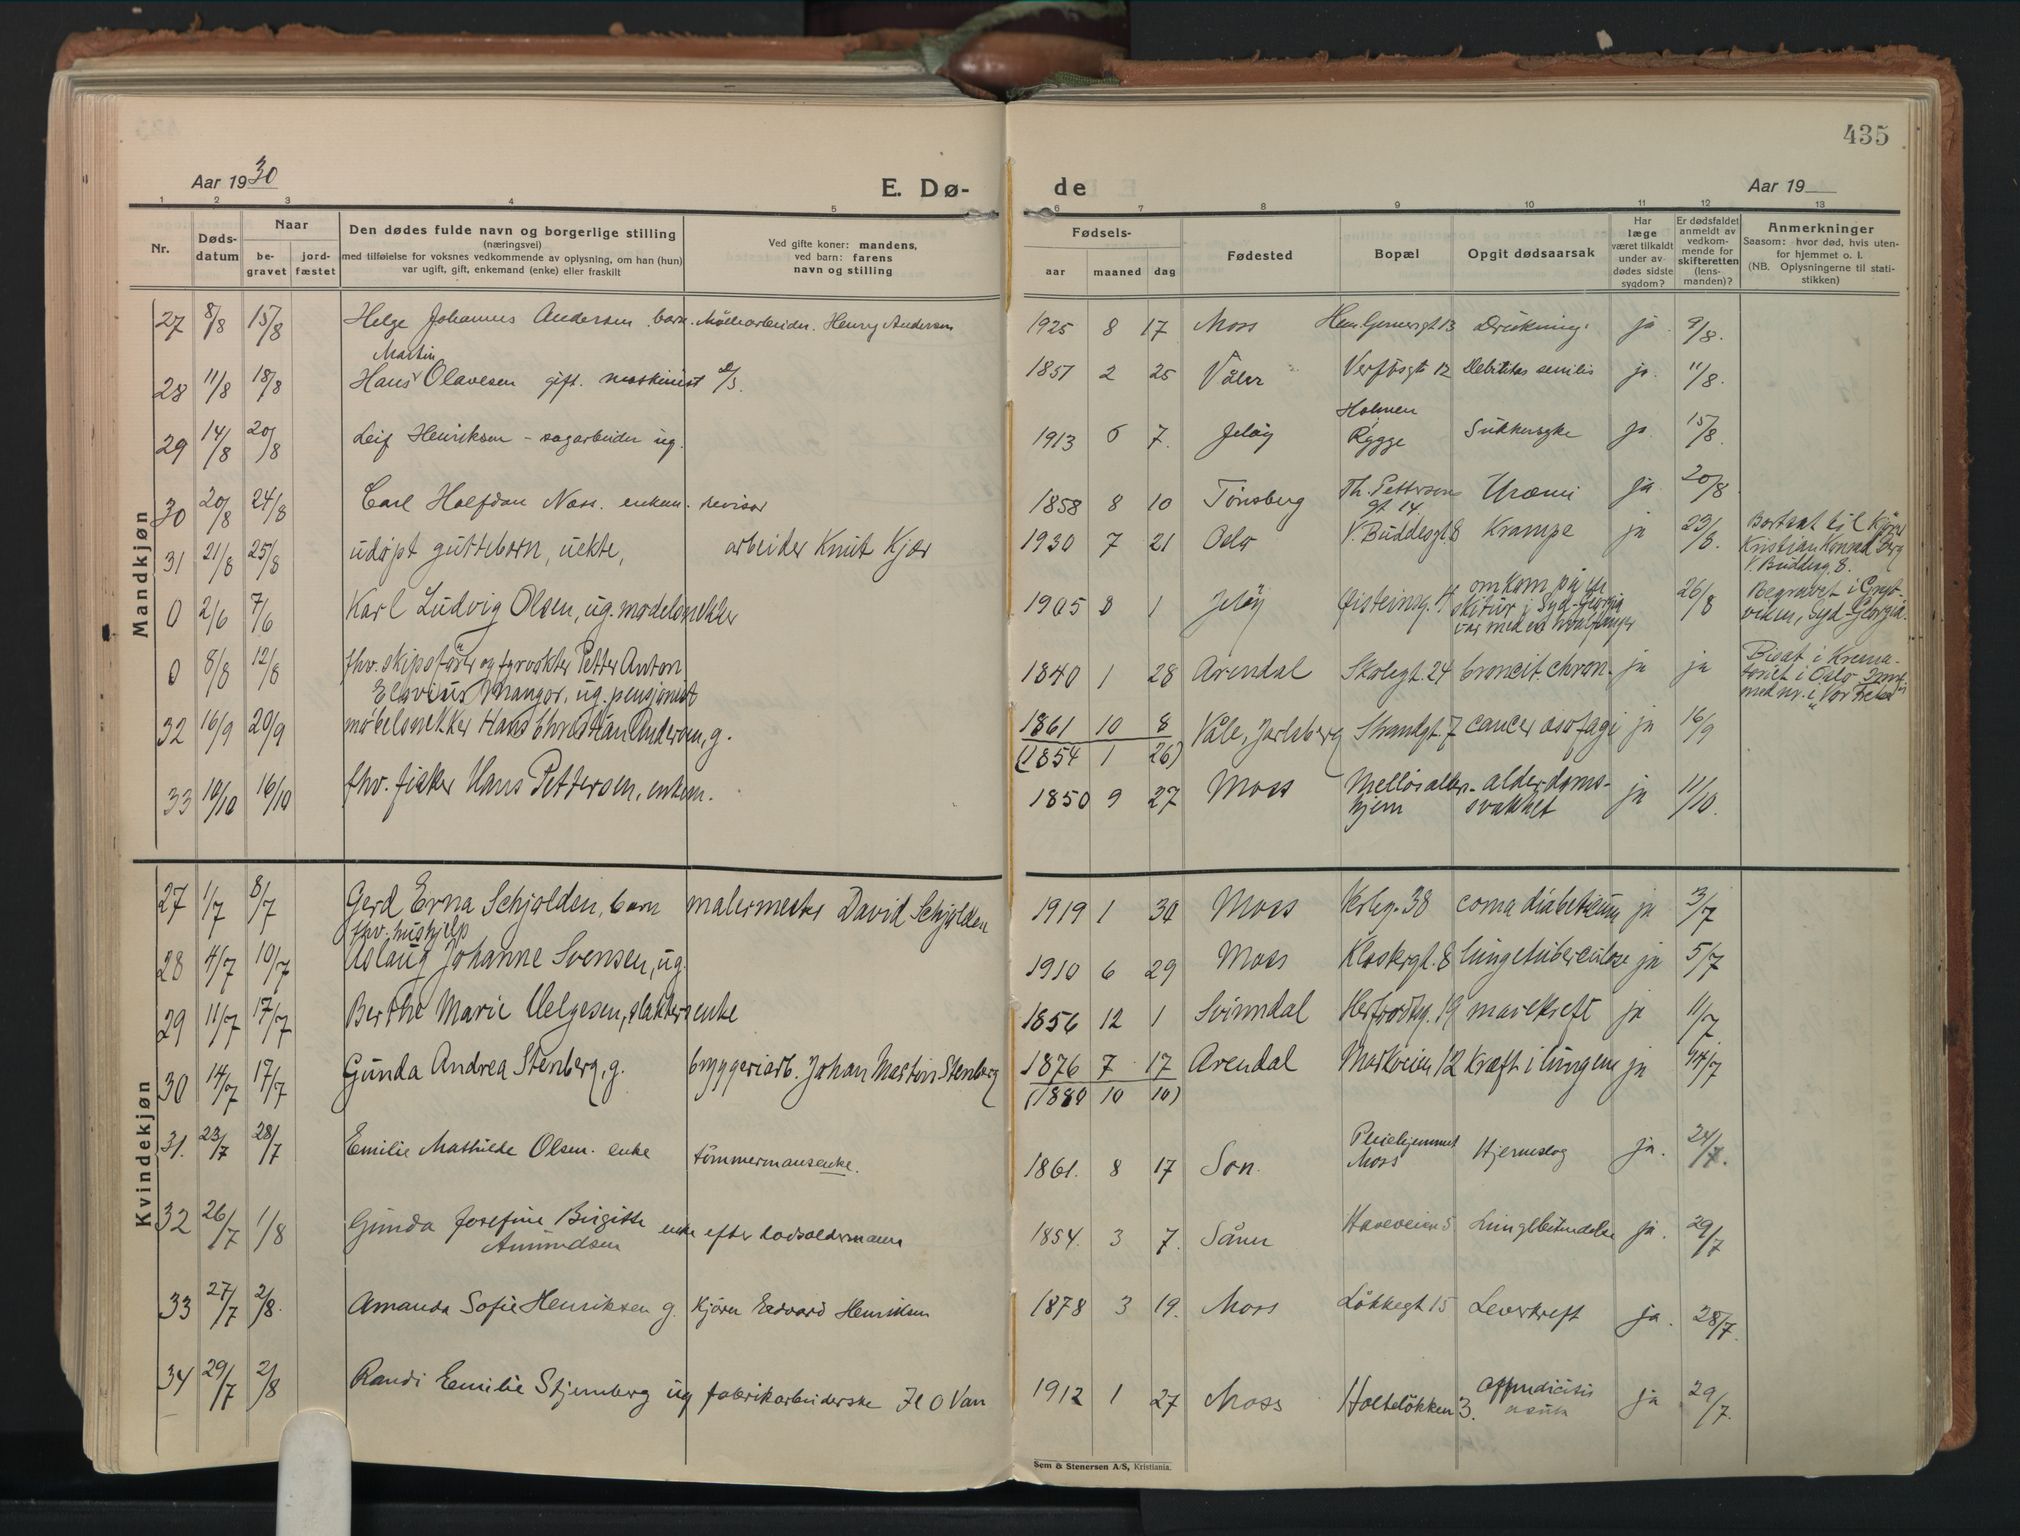 435
Aar 1930
E. Dø- de
Aar 19
1 2 3 4 5 6 7 8 9 10 11 12 13
Nr.
Døds-
datum
Naar
be-
gravet
jord-
fæstet
Den dødes fulde navn og borgerlige stilling
(næringsvei)
med tilføielse for voksnes vedkommende av oplysning, om han (hun)
var ugift, gift, enkemand (enke) eller fraskilt
Ved gifte koner: mandens,
ved barn: farens
navn og stilling
Fødsels-
aar maaned dag
Fødested
Bopæl
Opgit dødsaarsak
Har
læge
været tilkaldt
under av-
dødes sidste
sygdom?
Er dødsfaldet
anmeldt av
vedkom-
mende for
skifteretten
(lens-
manden)?
Anmerkninger
Saasom: hvor død, hvis uten-
for hjemmet o. l.
(NB. Oplysningerne til stati-
stikken)
Mandkjøn
27 8/8 15/8 Helge Johannes Andersen barn. Møllearbeider. Henry Andersen 1925 8 17 Moss Hen. Gernersgt 13 Drukning. ja 9/8.
Martin
28 11/8 18/8 Hans Olavesen gift. maskinist D/S. 1851 2 25 Våler Verftsgt 12 Debilitas senilis ja. 11/8.
29 14/8 20/8 Leif Henriksen - sagarbeider ug. 1913 6 7. Jeløy Holmen
Rygge Sukkersyke ja. 15/8.
30 20/8 24/8 Carl Halfdan Næss. enkem. revisor 1858 8 10 Tønsberg Th. Petersens
gt. 14. Uræmi ja 20/8.
31 21/8 25/8 udøpt guttebarn, uekte, arbeider Knut Kjær 1930 7 21 Oslo V. Buddesgt. 8 Krampe ja 23/8. Bortsat til
Kristian Konrad Berg
V. Buddesg. 8.
0 2/6 7/6 Karl Ludvig Olsen, ug. modelsnekker 1905 8 1 Jeløy Øisteinsg. omkom på en
skitur i Syd-Georgia
var med en hvalfanger 26/8 Begravet i Gryt-
viken, Syd-Georgia.
0 8/8 12/8 fhv. skipsfører og fyrvokter Petter Anton
Mangor, ug. pensjonist 1840 1 28 Arendal Skolegt. 24 broncit. chron. ja ja Bisat i Krema-
toriet i Oslo
med ur. i Vor Frelser
32 16/9 20/9 møbelsnekker Hans Christian Andersen, g. 1861 10 8 Våle, Jarlsberg Strandgt. 7 cancer øsofagi ja 16/9
(1854 1 26)
33 10/10 16/10 fhv. fisker Hans Pettersen, enkem. 1850 9 27 Moss Melløs alders-
hjem alderdoms-
svakhet ja 11/10.
Kvindekjøn
27 1/7 8/7 Gerd Erna Schjolden, barn malermester David Schjolden 1919 1 30 Moss 38 coma diabeticum ja 3/7
fhv. hushjelp
28 4/7 10/7 Aslaug Johanne Svensen, ug. 1910 6 29 Moss Klostergt. 8 lungetuberculose ja 5/7
29 11/7 17/7 Berthe Marie Helgesen, slakters enke 1856 12 1 Svinndal 19 mavekreft ja 11/7.
30 14/7 17/7 Gunda Andrea Stenberg, g. bryggeriarb. Johan Martin Stenberg 1876 7 17 Arendal Markveien 12 Kræft i lungene ja 14/7
(1880 10 10)
31. 23/7 28/7 Emilie Mathilde Olsen. enke tømmermansenke. 1861. 8 17 Son. Pleiehjemmet
Moss Hjerneslag ja. 24/7.
32 26/7 1/8 Gunda Josefine Birgitte
Amundsen enke efter lodsoldermann 1854. 3 7. Såner Haveveien 5 Lungebetændelse ja. 29/7
33 27/7 2/8. Amanda Sofie Henriksen g. Kjører Edvard Henriksen 1878 3 19. Moss Løkkegt 15 Leverkreft ja. 28/7.
34 29/7 2/8 Randi Emilie Stjernberg ug fabrikarbeiderske 1912 1 27 Moss Holteløkken 3. Appendicitis
acuta ja 29/7.
Sem & Stenersen A/S, Kristiania.